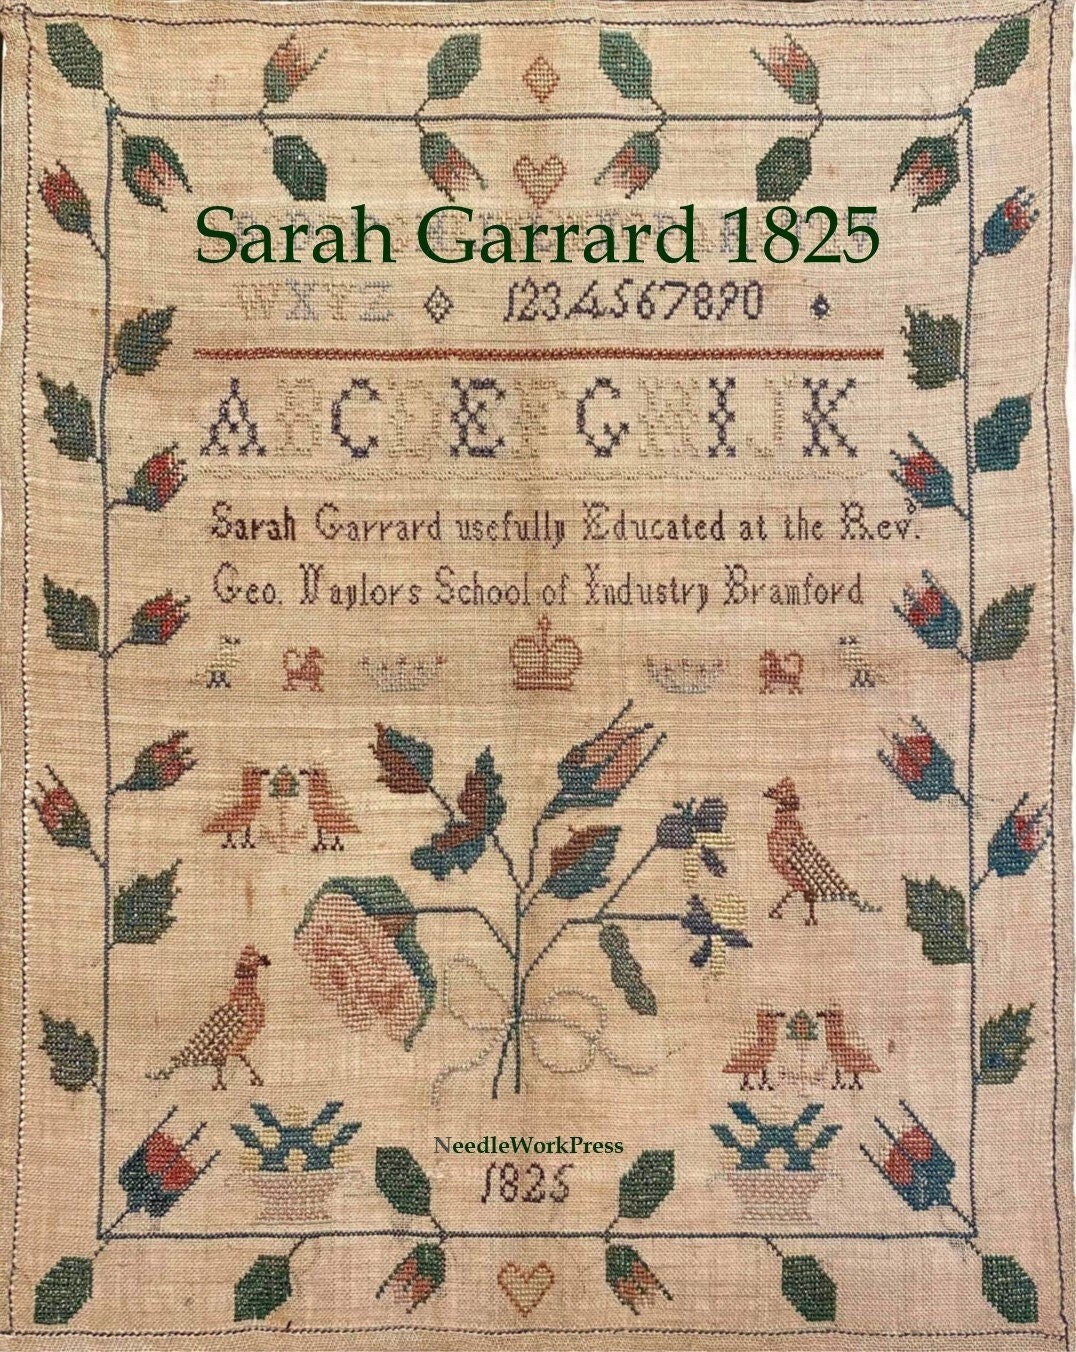 Sarah Garrard 1825
WXYZ 1234567890
A B C D E F G H I J K
Sarah Garrard usefully Educated at the Revd.
Geo. Naylors School of Industry Bramford
NeedleWorkPress
1825